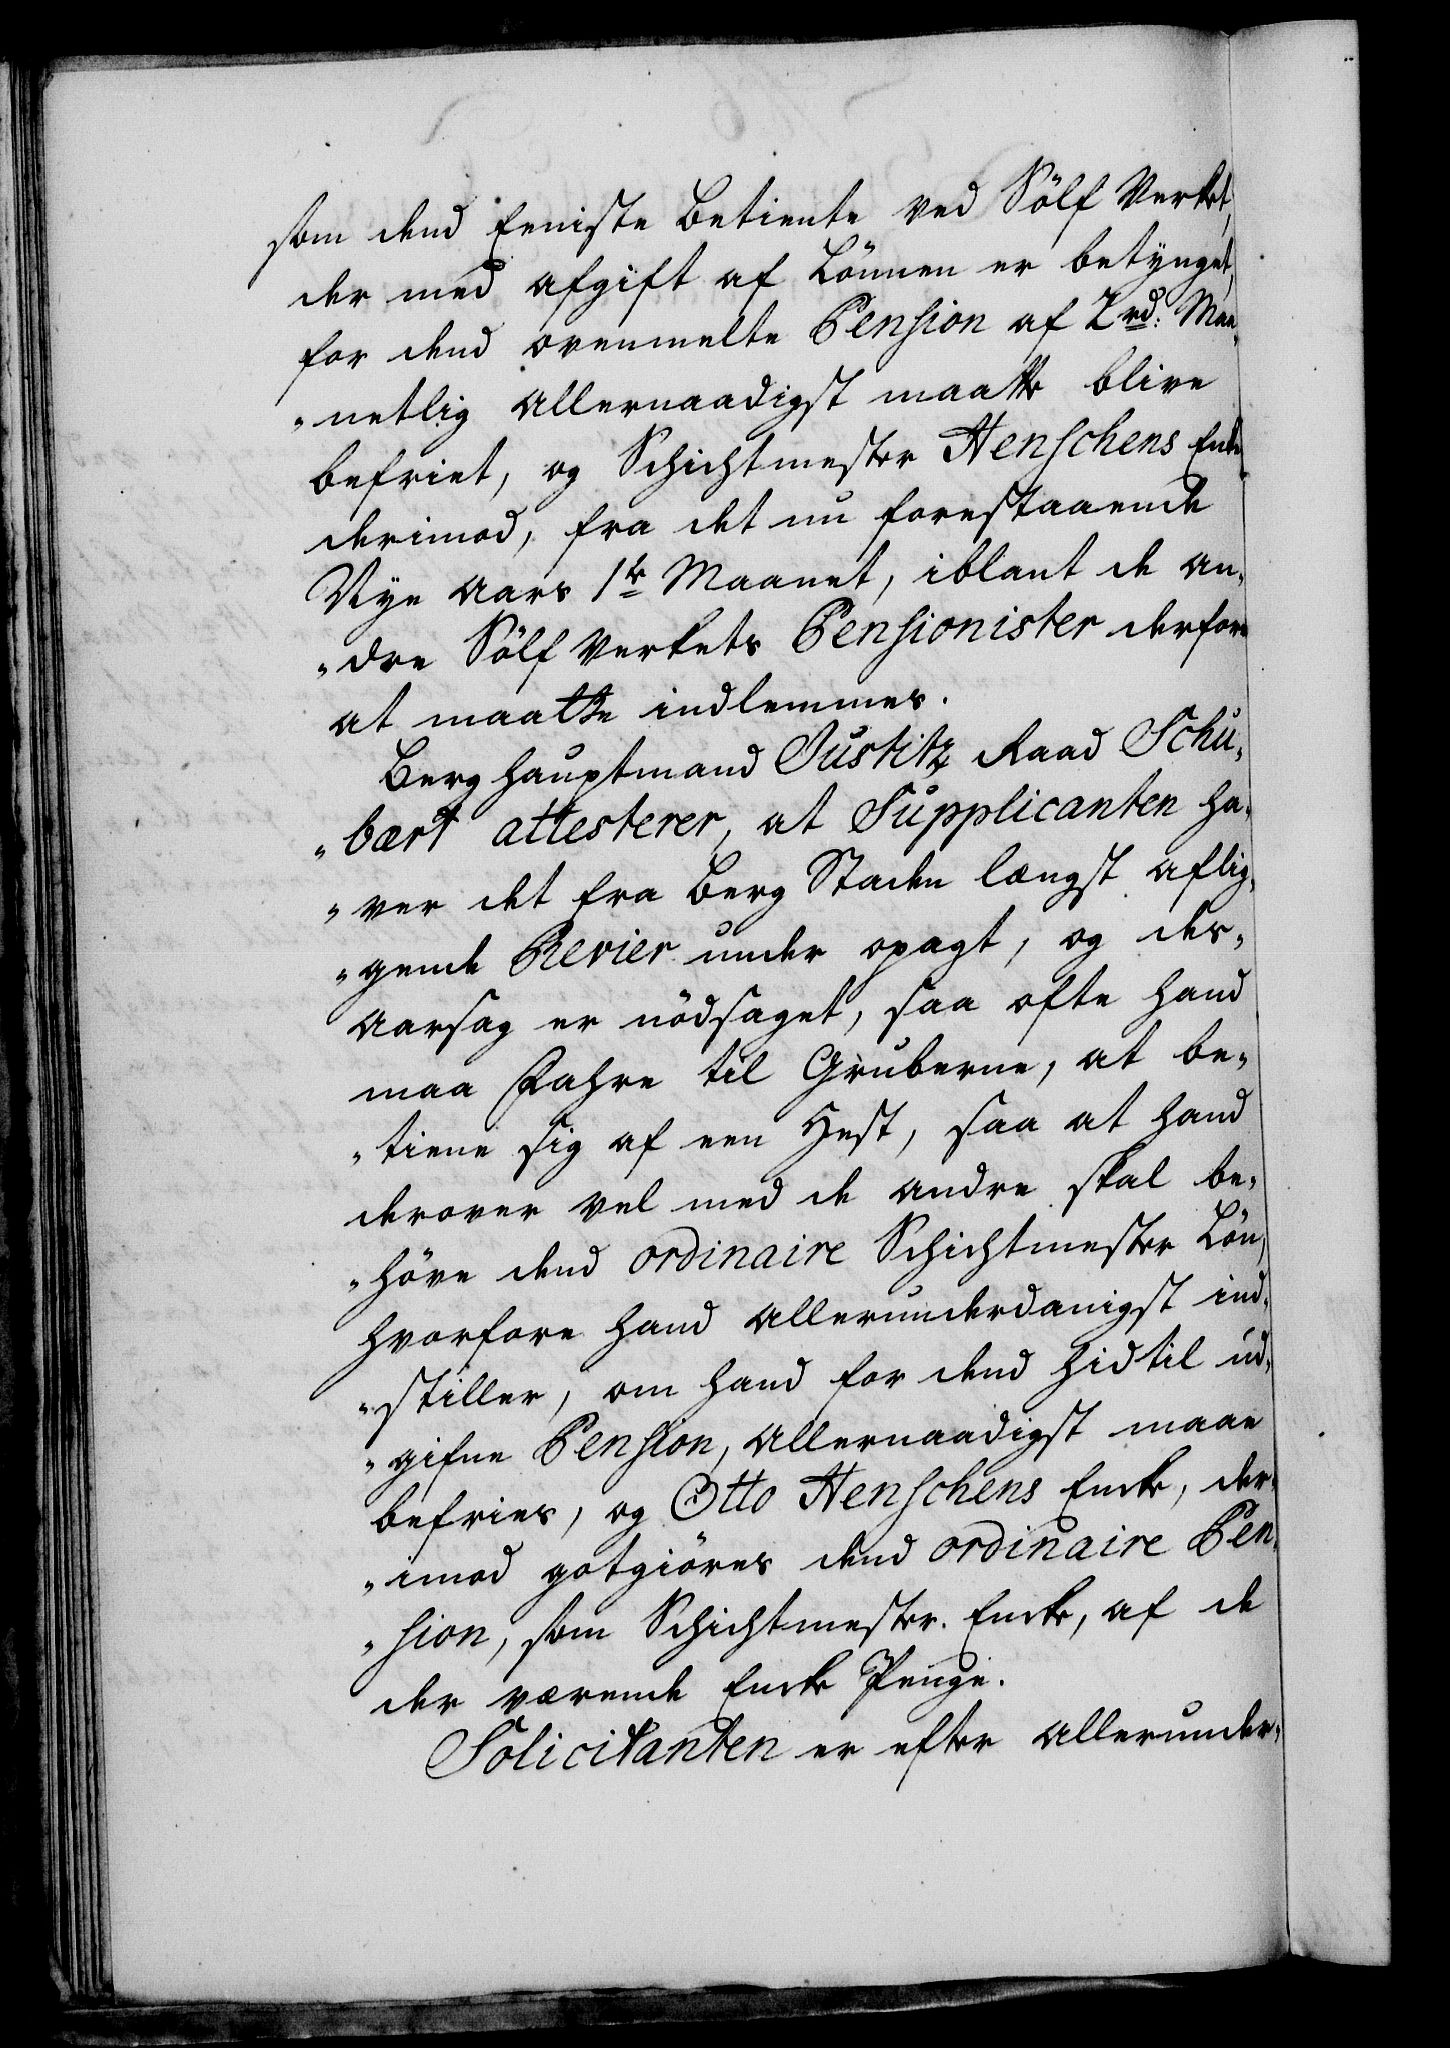 som dend Eeniste Betiente ved Sölf Verket,
der med afgift af Lönnen er betynget,
for dend ovenmelte Pension af 2 rd: Maa„
„netlig allernaadigst maatte blive
befriet, og Schichtmester Henschens Enke
derimod, fra det nu forestaaende
Nye aars 1te Maanet, iblant de an„
„dre Sölf Verkets Pensionister derfore
at maatte indlemmes.
Berghauptmand Justitz Raad Schu„
„bært attesterer, at Supplicanten ha„
„ver det fra Berg Staden længst aflig„
„gende Revier under opagt, og des„
aarsag er nödsaget, saa ofte hand
maa Fahre til Gruberne, at be„
„tiene sig af een Hest, saa at hand
derover vel med de andre skal be„
„höve dend ordinaire Schichtmester Lön,
hvorfore hand allerunderdanigst ind„
„stiller, om hand for dend hidtil ud„
„gifne Pension, allernaadigst maae
befries, og Otto Henschens Encke, der„
„imod gotgiöres dend ordinaire Pen„
„sion, som Schichtmester Encke, af de
der værende Encke Penge.
Solicitanten er efter allerunder„